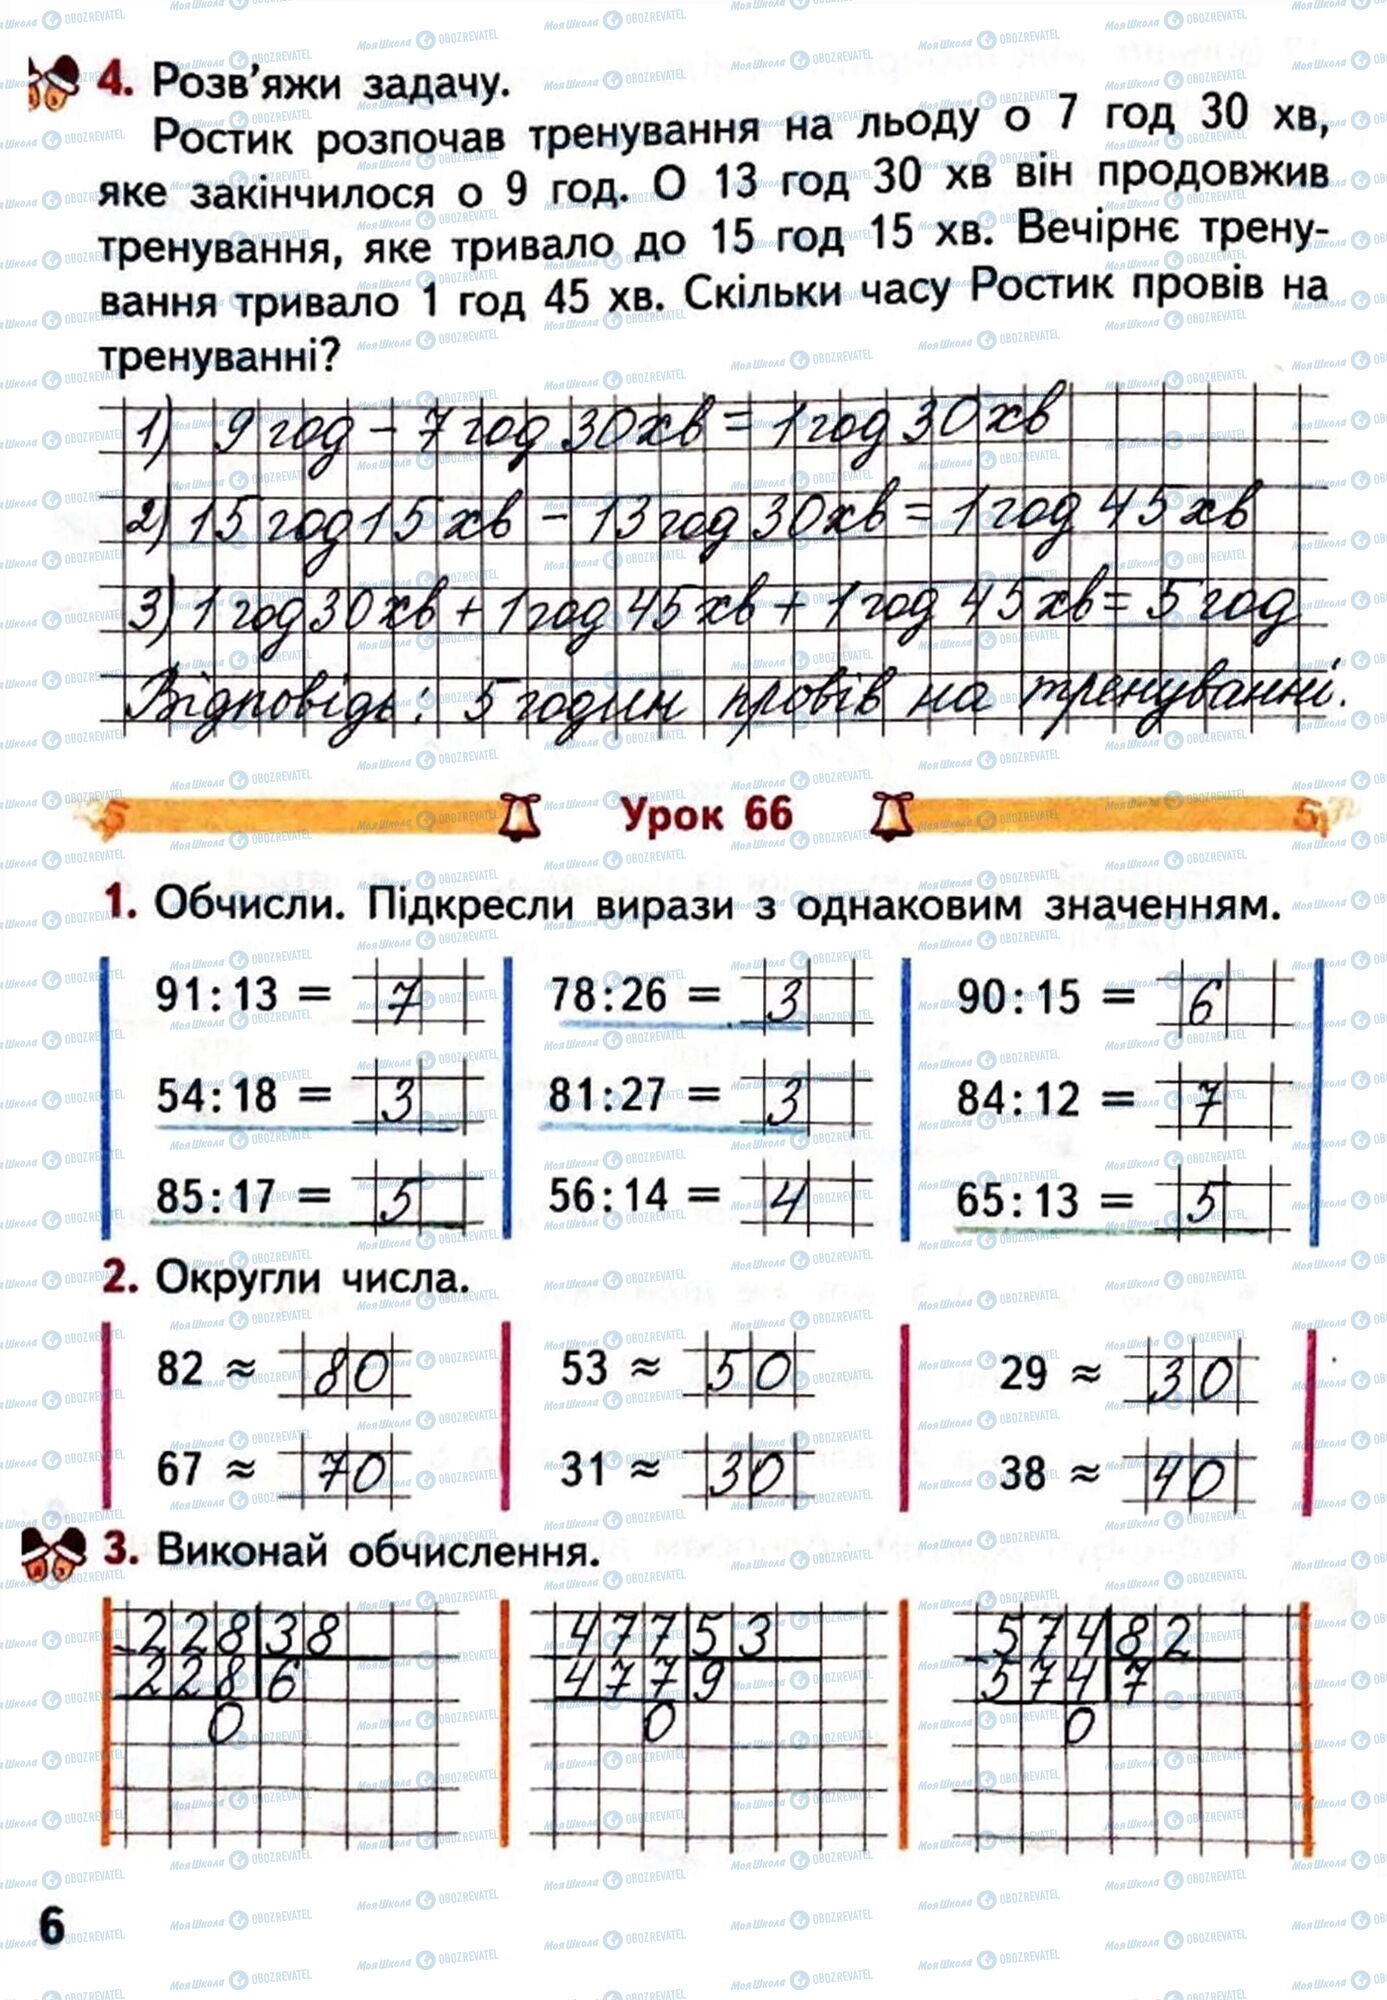 4. Розв'яжи задачу.
Ростик розпочав тренування на льоду о 7 год 30 хв,
яке закінчилося о 9 год. О 13 год 30 хв він продовжив
тренування, яке тривало до 15 год 15 хв. Вечірнє трену-
вання тривало 1 год 45 хв. Скільки часу Ростик провів на
тренуванні?
1) 9 год - 7 год 30 хв = 1 год 30 хв
2) 15 год 15 хв - 13 год 30 хв = 1 год 45 хв
3) 1 год 30 хв + 1 год 45 хв + 1 год 45 хв = 5 год
Відповідь: 5 годин провів на тренуванні.
Урок 66
1. Обчисли. Підкресли вирази з однаковим значенням.
91:13 = 7 78:26 = 3 90:15 = 6
54:18 = 3 81:27 = 3 84:12 = 7
85:17 = 5 56:14 = 4 65:13 = 5
2. Округли числа.
82 ≈ 80 53 ≈ 50 29 ≈ 30
67 ≈ 70 31 ≈ 30 38 ≈ 40
3. Виконай обчислення.
228 38 477 53 574 82
228 6 477 9 574 7
0 0 0
6
МояШкола OBOZREVATEL